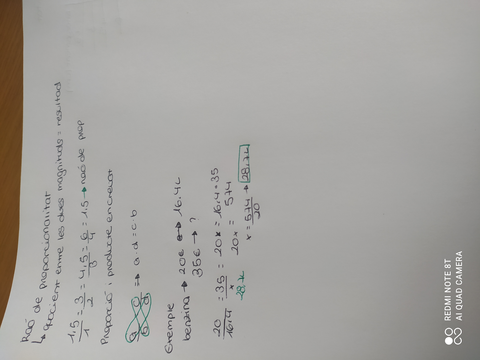 Raó de proporcionalitat
↳ quocient entre les dues magnituds = resultat
1.5/1 = 3/2 = 4.5/3 = 6/4 = 1.5 → raó de prop
Proporció i producte encreuat
a/b = c/d ⇒ a·d = c·b
Exemple
benzina → 20€ → 16.4L
35€ → ?
20/16.4 = 35/x = 20x = 16.4·35
20x = 574
x = 574/20 → 28.7L
28.7L
REDMI NOTE 8T
AI QUAD CAMERA